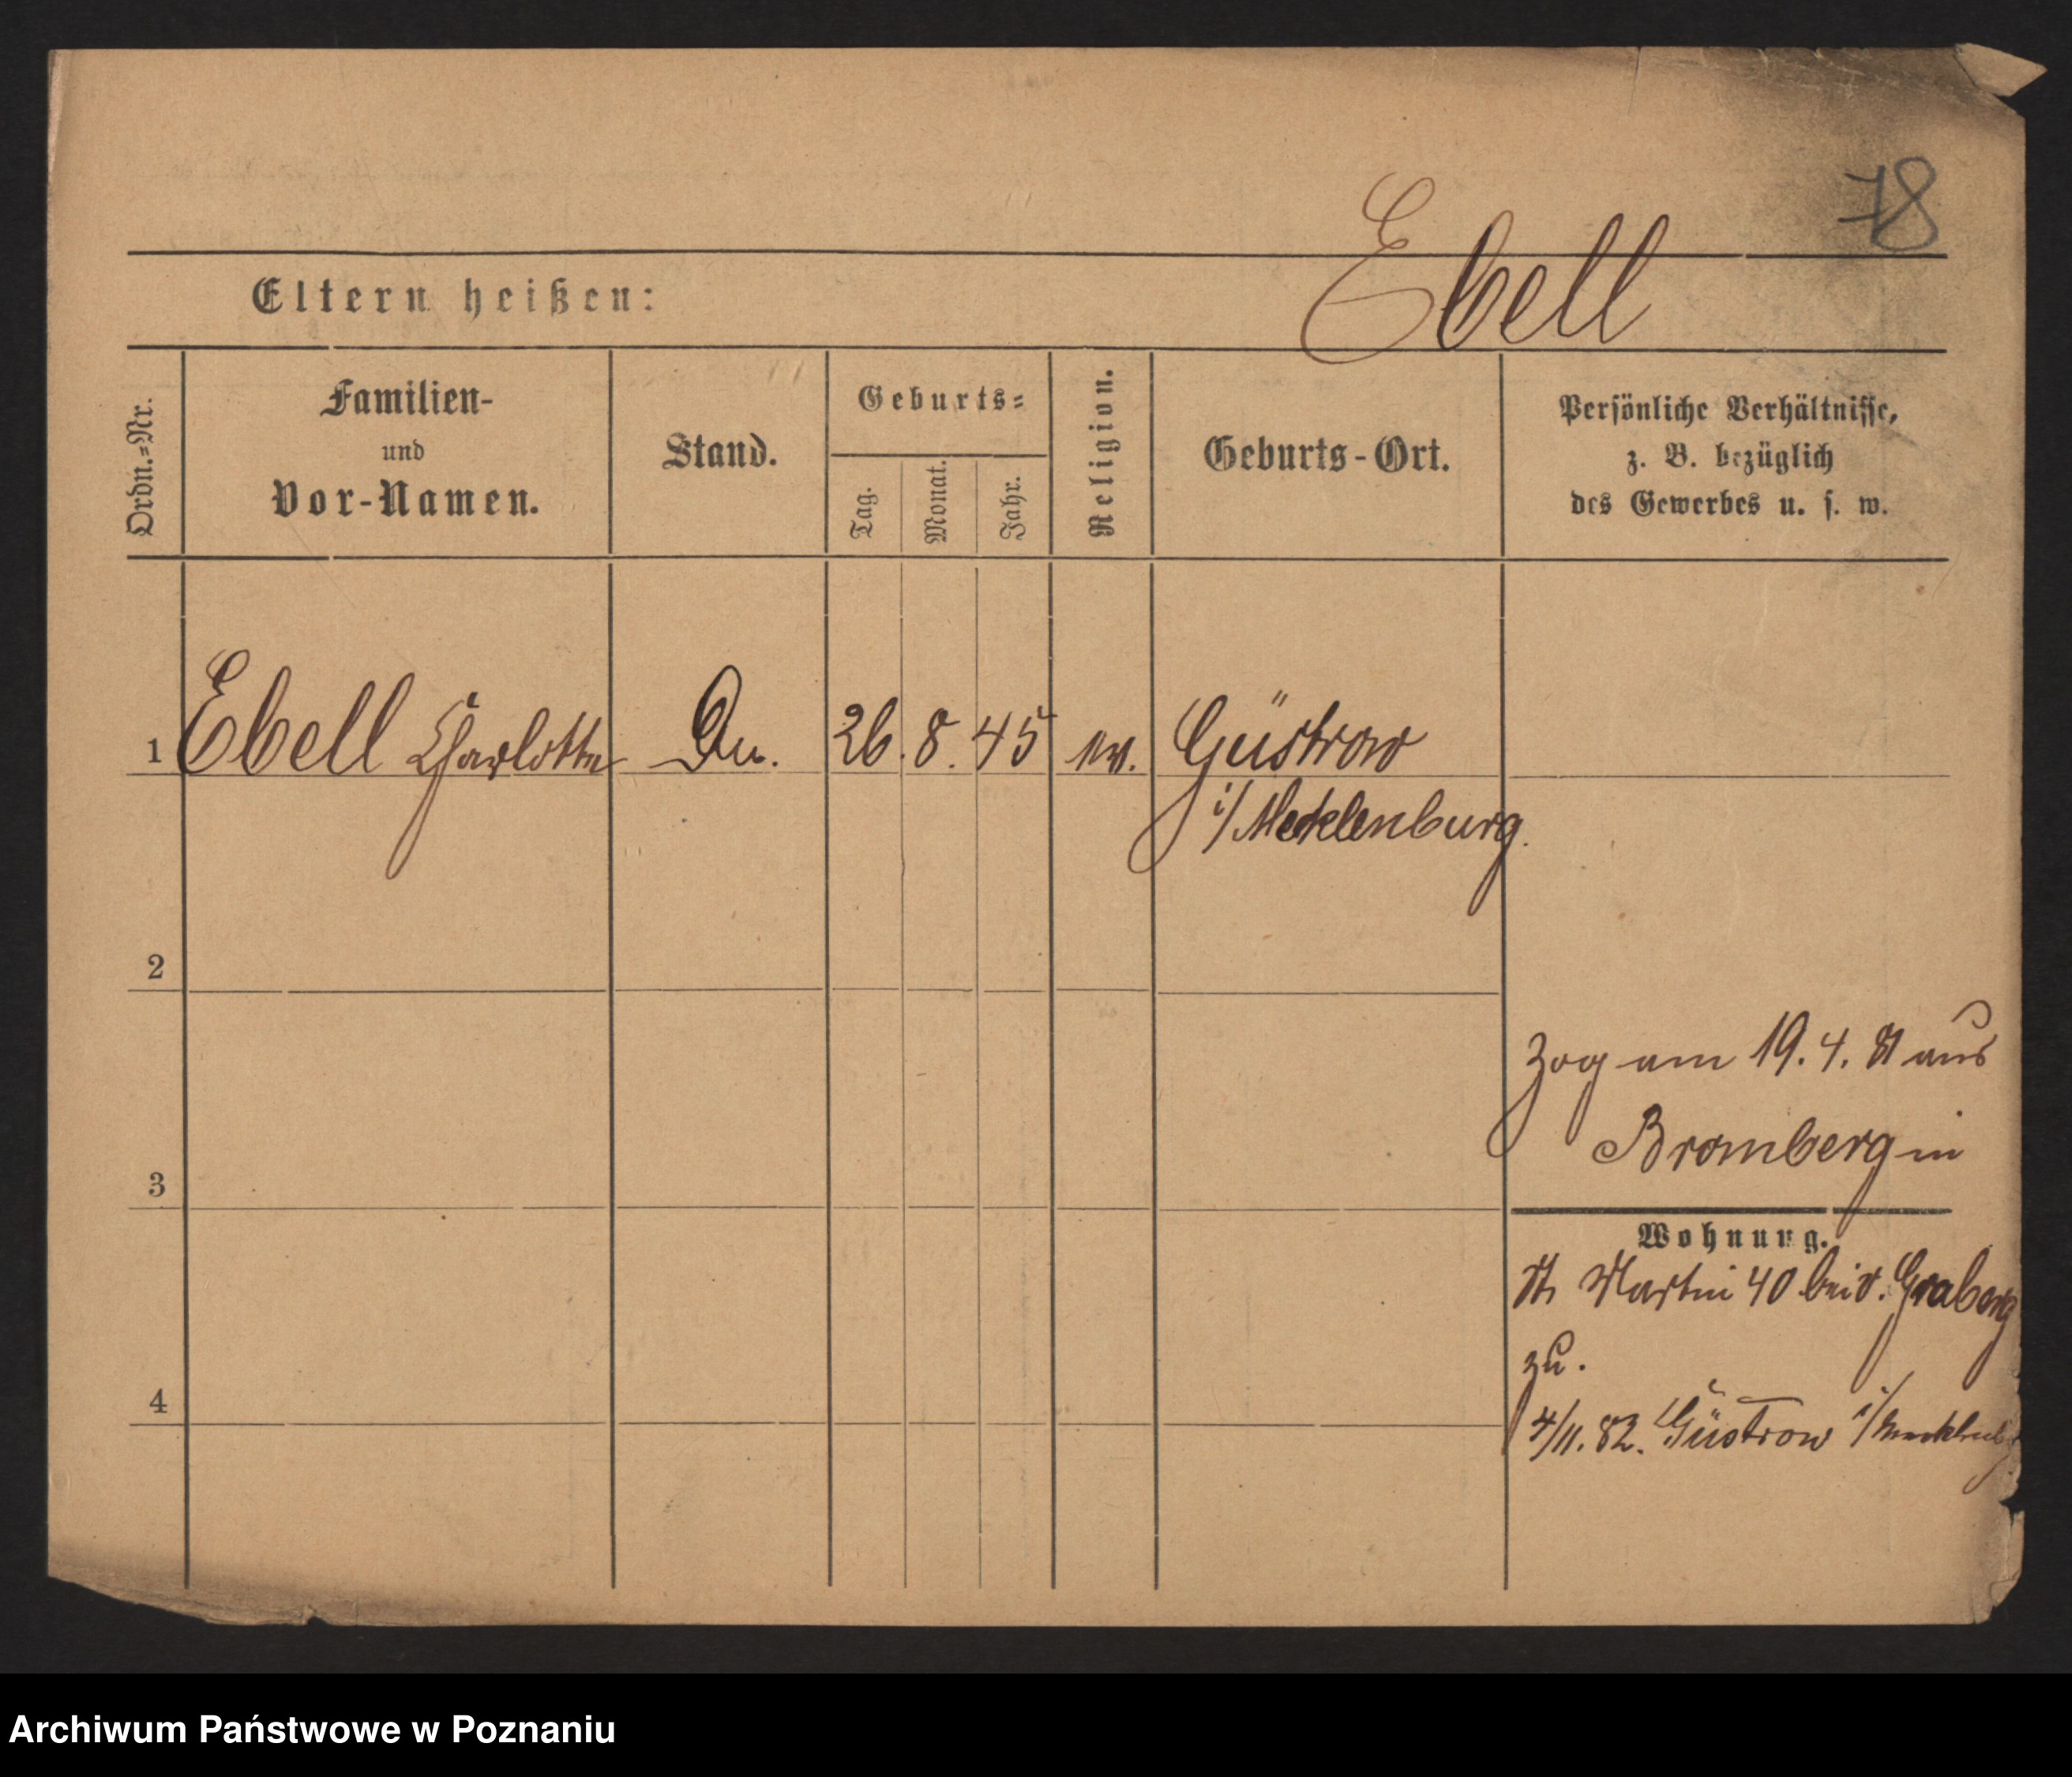 78
Ebell
Eltern heißen:
Ordn.=Nr.
Familien-
und
Vor-Namen.
Stand.
Geburts=
Tag.
Monat.
Jahr.
Religion.
Geburts-Ort.
Persönliche Verhältnisse,
z. B. bezüglich
des Gewerbes u. s. w.
1 Ebell Charlotte 26. 8. 45 Güstrow
i/Mecklenburg.
2
zog am 19. 4. 81 aus
Bromberg in
3
Wohnung.
St. Martin 40 bei v. Graberg
zu.
4
4/11. 82. Güstrow i/Mecklenb
Archiwum Państwowe w Poznaniu